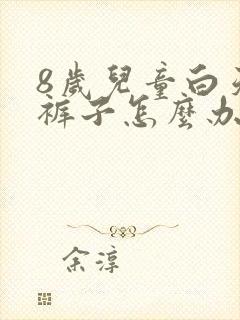 8歲兒童白天
裤子怎麼办
余淳